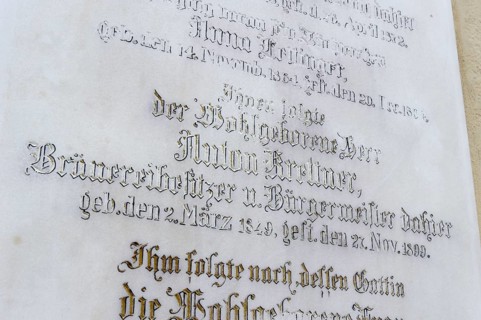 gest. d. Apr. 1872.
Anna
geb. den 14. Novemb. gest. den 20. Dec.
Ihnen folgte
der Wohlgeborene Herr
Anton Krettner,
Bräuereibesitzer u. Bürgermeister dahier
geb. den 2. März 1849, gest. den 27. Nov. 1899.
Ihm folgte nach dessen Gattin
die Wohlgeborene Frau